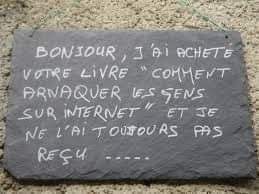 BONJOUR, J'AI ACHETÉ
VOTRE LIVRE "COMMENT
ARNAQUER LES GENS
SUR INTERNET" ET JE
NE L'AI TOUJOURS PAS
REÇU .....